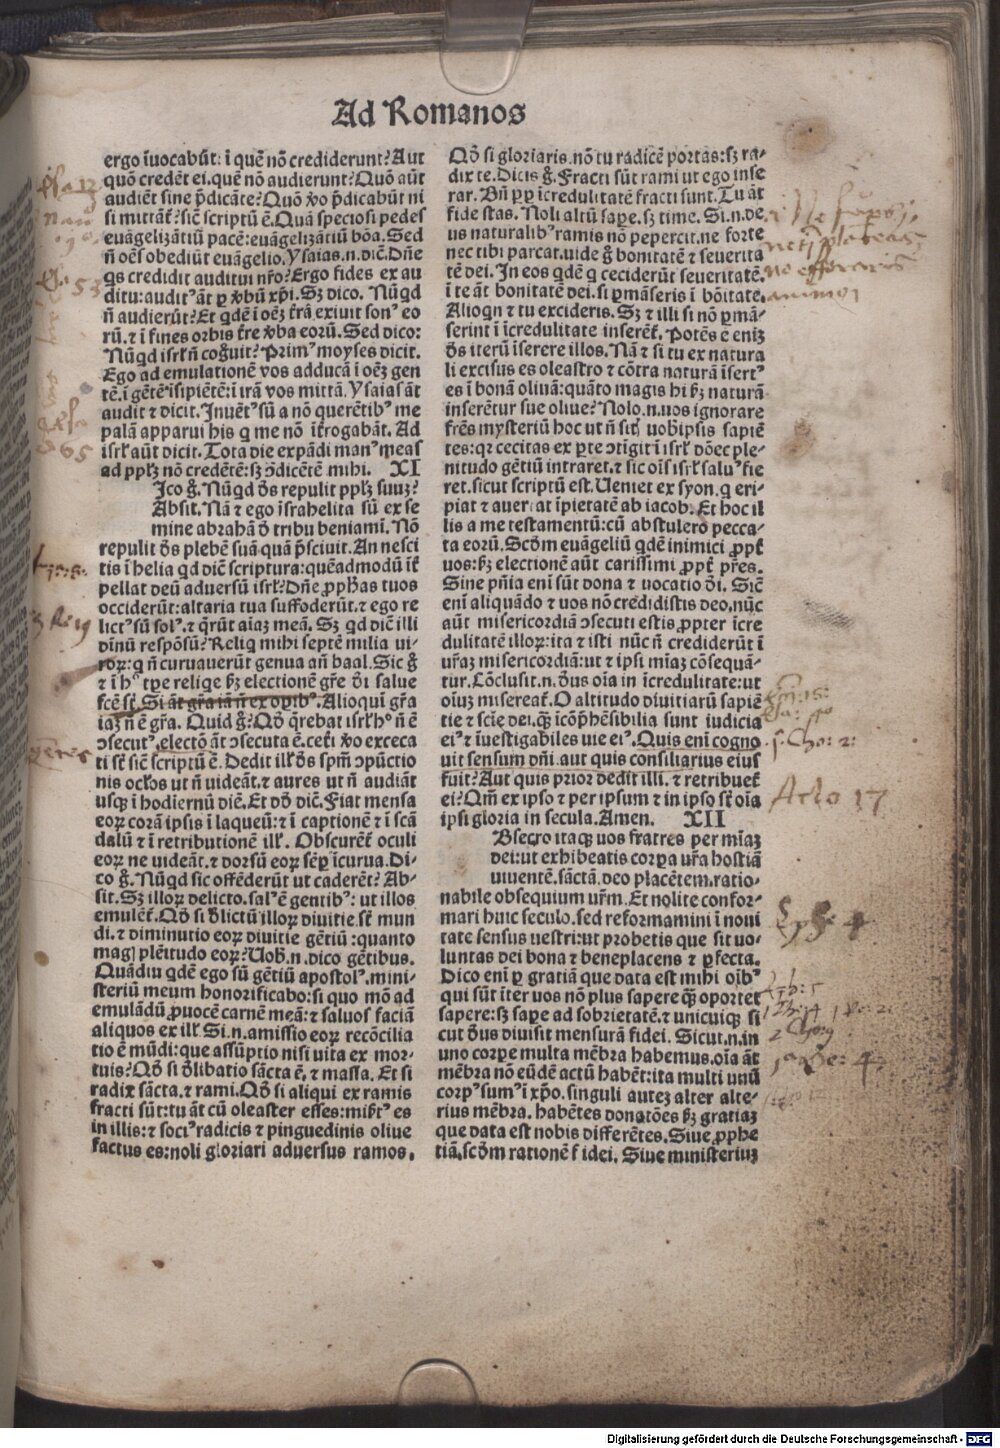 Ad Romanos
ergo īuocabūt: ī quē nō crediderunt? Aut
quō credēt ei. quē nō audierunt? Quō aūt
audiēt sine p̄dicāte? Quō ꝟo p̄dicabūt ni
si mittāt̄? sic̄ scriptū ē. Quā speciosi pedes
euāgelizātiū pacē: euāgelizātiū bōa. Sed
n̄ oēs obediūt euāgelio. Ysaias .n. dic̄. Dn̄e
qs credidit auditui nr̄o? Ergo fides ex au
ditu: auditꝰ āt ꝑ ꝟbū xp̄i. Sꝫ dico. Nūqd
n̄ audierūt? Et qdē ī oēꝫ t̄rā exiuit sonꝰ eo
rū. ⁊ ī fines orbis t̄re ꝟba eorū. Sed dico:
Nūqd isrl̄ n̄ coḡuit? Primꝰ moyses dicit.
Ego ad emulationē vos adducā ī oēꝫ gen
tē. ī gētē īsipiētē: ī irā vos mittā. Ysaias āt
audit ⁊ dicit. Inuētꝰ sū a nō querētibꝰ me
palā apparui his q me nō īt̄rogabāt. Ad
isrl̄ aūt dicit. Tota die expādi manꝰ meas
ad pplꝫ nō credētē: sꝫ ꝯdicētē mihi. XI
Ico g̊. Nūqd dn̄s repulit pplꝫ suuꝫ?
Absit. Nā ⁊ ego īsrahelita sū ex se
mine abrahā d̄ tribu beniamī. Nō
repulit dn̄s plebē suā quā p̄sciuit. An nesci
tis ī helia qd dic̄ scriptura: quēadmodū īt̄
pellat deū aduersū isrl̄? Dn̄e ꝓphās tuos
occiderūt: altaria tua suffoderūt. ⁊ ego re
lictꝰ sū solꝰ. ⁊ q̄rūt aiaꝫ meā. Sꝫ qd dic̄ illi
diuinū respōsū? Reliq mihi septē milia ui/
roꝝ: q n̄ curuauerūt genua an̄ baal. Sic g̊
⁊ ī hͦ tꝑe reliqe ẜꝫ electionē gr̄e dī salue
fc̄ē st̄. Si āt gr̄a iā n̄ ex oꝑibꝰ. Alioqui gr̄a
iaꝫ n̄ ē gr̄a. Quid g̊? Qd̄ q̄rebat isrl̄ hͦ n̄ ē
ꝯsecutꝰ. electō āt ꝯsecuta ē. cet̄i ꝟo exceca
ti st̄ sic̄ scriptū ē. Dedit ill̄ dn̄s spm̄ ꝯpūctio
nis oc̄los ut n̄ uideāt. ⁊ aures ut n̄ audiāt
usqꝫ ī hodiernū diē. Et dd̄ dic̄. Fiat mensa
eoꝝ corā ipsis ī laqueū: ⁊ ī captionē ⁊ ī scā
dalū ⁊ ī retributionē ill̄. Obscurēt̄ oculi
eoꝝ ne uideāt. ⁊ dorsū eoꝝ sēꝑ īcurua. Di/
co g̊. Nūqd sic offēderūt ut caderēt? Ab/
sit. Sꝫ illoꝝ delicto. salꝰ ē gentibꝰ: ut illos
emulēt̄. Qd̄ si d̄lictū illoꝝ diuitie st̄ mun
di. ⁊ diminutio eoꝝ diuitie gētiū: quanto
mag̨ plēitudo eoꝝ? Uob̄ .n. dico gētibus.
Quādiu qdē ego sū gētiū apostolꝰ. mini/
steriū meum honorificabo: si quo mō ad
emulādū ꝓuocē carnē meā: ⁊ saluos faciā
aliquos ex ill̄. Si .n. amissio eoꝝ recōcilia
tio ē mūdi: que assūptio nisi uita ex mor/
tuis? Qd̄ si d̄libatio sācta ē, ⁊ massa. Et si
radix sācta. ⁊ rami. Qd̄ si aliqui ex ramis
fracti sūt: tu āt cū oleaster esses: misꝰt̄ es
in illis: ⁊ sociꝰ radicis ⁊ pinguedinis oliue
factus es: noli gloriari aduersus ramos.
Qd̄ si gloriaris. nō tu radicē portas: sꝫ ra/
dix te. Dicis g̊. Fracti sūt rami ut ego inse
rar. Bn̄ ꝓꝑ īcredulitatē fracti sunt. Tu āt
fide stas. Noli altū saꝑe. sꝫ time. Si .n. de/
us naturalibꝰ ramis nō pepercit. ne forte
nec tibi parcat. uide g̊ bonitatē ⁊ seuerita
tē dei. In eos qdē q ceciderūt seueritatē.
ī te āt bonitatē dei. si ꝑmāseris ī bōitate.
Alioqn ⁊ tu excideris. Sꝫ ⁊ illi si nō ꝑmā/
serint ī īcredulitate inserēt̄. Potēs ē eniꝫ
dn̄s iterū īserere illos. Nā ⁊ si tu ex natura
li excisus es oleastro ⁊ cōtra naturā īsertꝰ
es ī bonā oliuā: quāto magis hi ẜꝫ naturā
inserētur sue oliue? Nolo .n. uos ignorare
fr̄es mysteriū hoc ut n̄ sitꝭ uobipsis sapiē
tes: qꝛ cecitas ex ꝑte ꝯtigit ī isrl̄ dōec ple/
nitudo gētiū intraret. ⁊ sic oīs isrl̄ saluꝰ fie
ret. sicut scriptū est. Ueniet ex syon. q eri/
piat ⁊ auertat īpietatē ab iacob. Et hoc il
lis a me testamentū: cū abstulero pecca/
ta eorū. Scd̄m euāgeliū qdē inimici ꝓpt̄
uos: ẜꝫ electionē aūt carissimi ꝓpt̄ pr̄es.
Sine pn̄ia enī sūt dona ⁊ uocatio dī. Sic̄
enī aliquādo ⁊ uos nō credidistis deo. nūc
aūt misericordiā ꝯsecuti estis ꝓpter īcre
dulitatē illoꝝ: ita ⁊ isti nūc n̄ crediderūt ī
ur̄aꝫ misericordiā: ut ⁊ ipsi mīaꝫ cōsequā/
tur. Cōclusit .n. dn̄s oīa in īcredulitate: ut
oīuꝫ misereat̄. O altitudo diuitiarū sapiē
tie ⁊ scīe dei. qꝫ̄ īcōp̄hēsibilia sunt iudicia
eiꝰ ⁊ īuestigabiles uie eiꝰ. Quis enī cogno
uit sensum dn̄i. aut quis consiliarius eius
fuit? Aut quis prior dedit illi. ⁊ retribuet̄
ei? Qm̄ ex ipso ⁊ per ipsum ⁊ in ipso st̄ oīa
ipsi gloria in secula. Amen. XII
Bsecro itaqꝫ uos fratres per mīaꝫ
dei: ut exhibeatis corꝑa ur̄a hostiā
uiuentē. sāctā. deo placētem. ratio/
nabile obsequium ur̄m. Et nolite confor/
mari huic seculo. sed reformamini ī noui
tate sensus uestri: ut probetis que sit uo/
luntas dei bona ⁊ beneplacens ⁊ ꝑfecta.
Dico enī ꝑ gratiā que data est mihi oībꝰ
qui sūt īter uos nō plus sapere qꝫ̄ oportet
sapere: sꝫ saꝑe ad sobrietatē. ⁊ unicuiqꝫ si
cut dn̄s diuisit mensurā fidei. Sicut .n. in
uno corꝑe multa mēbra habemus. oīa āt
mēbra nō eūdē actū habēt: ita multi unū
corpꝰ sumꝰ ī xp̄o. singuli auteꝫ alter alte/
rius mēbra. habētes donatōes ẜꝫ gratiaꝫ
que data est nobis differētes. Siue ꝓphe
tiā. scd̄m rationē fidei. Siue ministeriuꝫ
53
65
3 Re 19
Acto 17
Digitalisierung gefördert durch die Deutsche Forschungsgemeinschaft - DFG